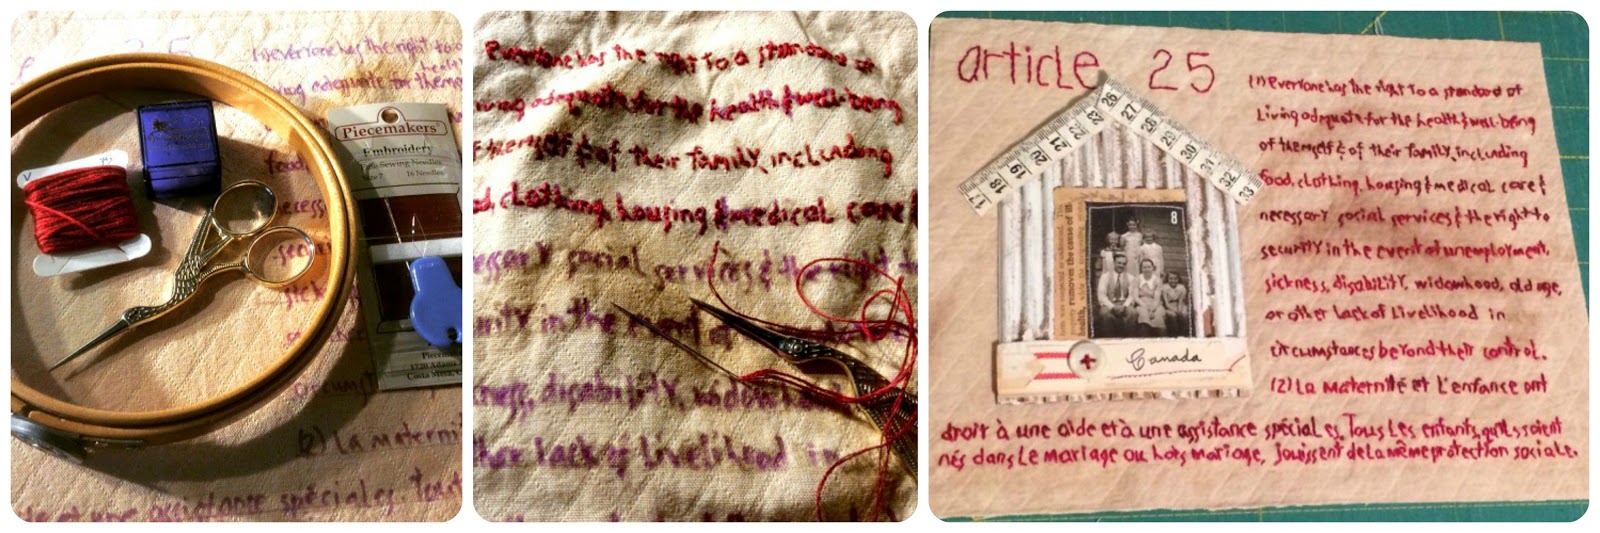 everyone has the right to
adequate for
Piecemakers'
Embroidery
Sewing Needles
Size 7 16 Needles
1720 Adams
Costa Mesa, C
(2) La maternit
assistance spéciales. Tous
everyone has the right to a standard of
living adequate for the health & well-being
of themself & of their family, including
d, clothing, housing & medical care &
essary social services & the right to
urity in the event of
kness, disability, widowhood
ther lack of livelihood in
article 25
17 18 19 20 21 22 23 26 27 28 29 30 31 32 33
8
removes the cause of
Canada
(1) everyone has the right to a standard of
living adequate for the health & well-being
of themself & of their family, including
food, clothing, housing & medical care &
necessary social services & the right to
security in the event of unemployment,
sickness, disability, widowhood, old age,
or other lack of livelihood in
circumstances beyond their control.
(2) La maternité et l'enfance ont
droit à une aide et à une assistance spéciales. Tous les enfants, qu'ils soient
nés dans le mariage ou hors mariage, jouissent de la même protection sociale.